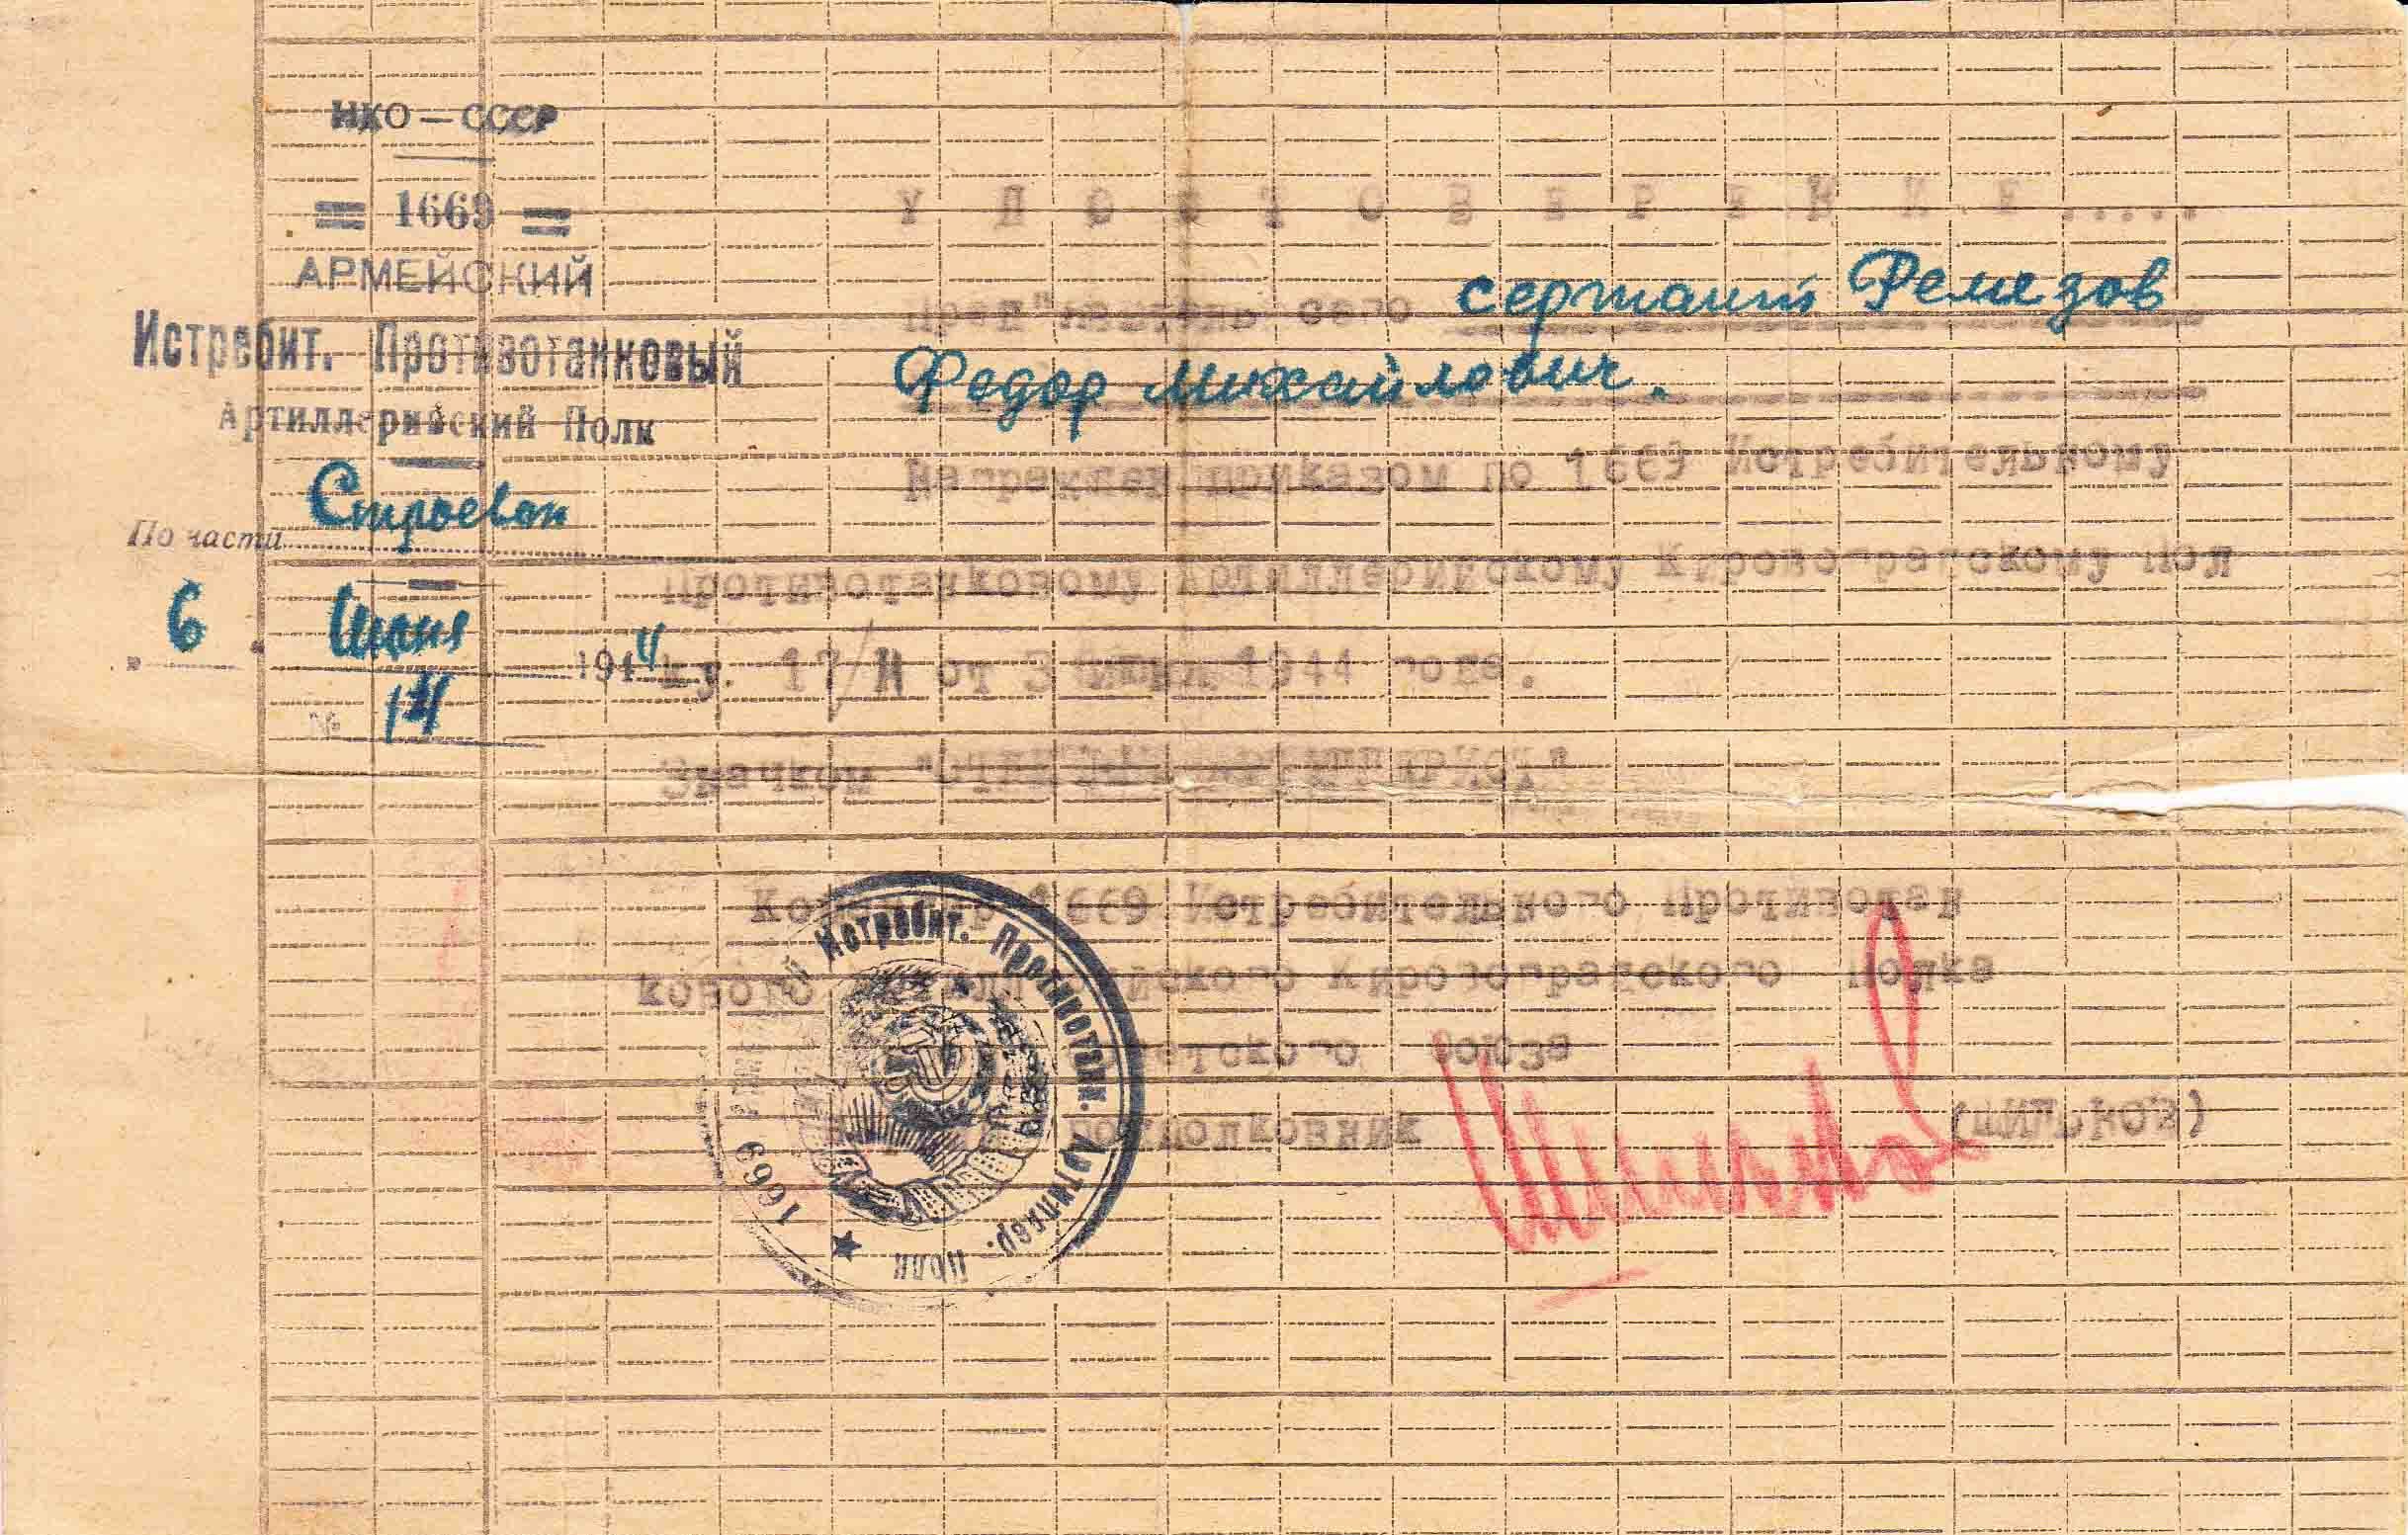 НКО — СССР
= 1669 =
АРМЕЙСКИЙ
Истребит. Противотанковый
Артиллерийский Полк
По части Строевой
6 Июня 1944
№ 14
У Д О С Т О В Е Р Е Н И Е .....
Пред"явитель сего сержант Ремезов
Федор Михайлович.
Награжден приказом по 1669 Истребительному
Противотанковому Артиллерийскому Кировоградскому Пол
ку. 17/Н от 3 1944 года.
Значком "ОТЛИЧНЫЙ АРТИЛЛЕРИСТ"
1669 Истребительного Противотан
кового Кировоградского Полка
Союза
подполковник (ШИЛЬКОВ)
Истребит. Противотанк. Артиллер. Полк ★ 1669